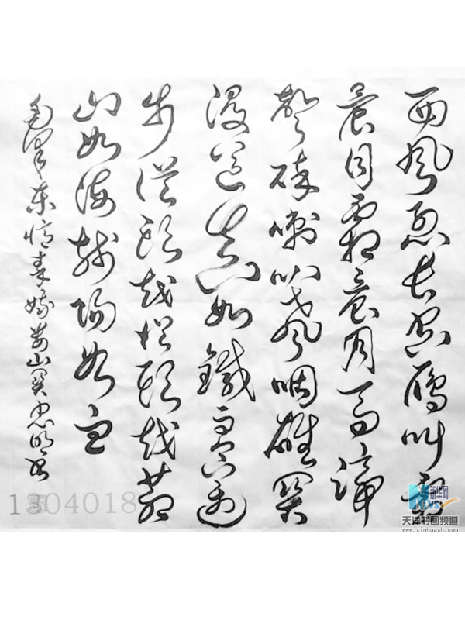 西风烈长空雁叫霜
晨月霜晨月马蹄
声碎喇叭声咽雄关
漫道真如铁而今迈
步从头越从头越苍
山如海残阳如血
毛泽东忆秦娥娄山关
1304018